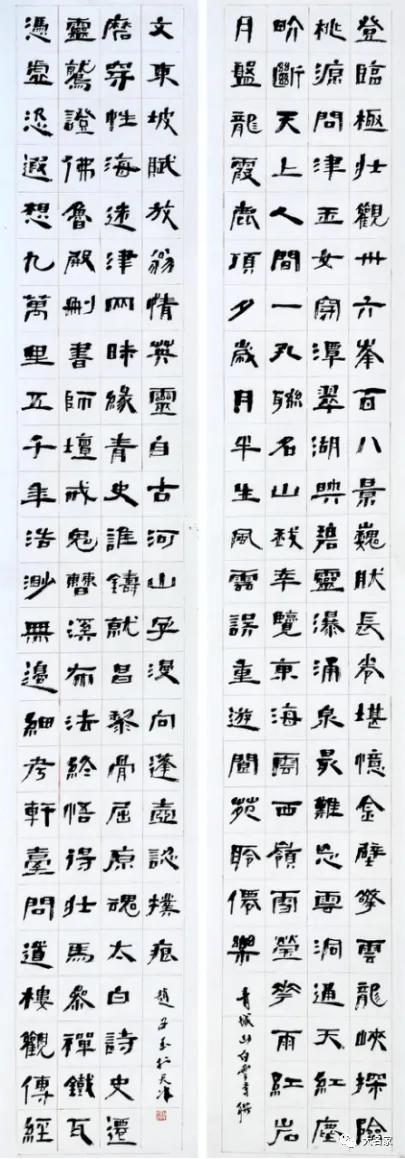 登臨極壯觀卅六峯百八景巍肰長卷堪憶金壁擎雲龍峽探險
桃源問津玉女穿潭翠湖映碧靈瀑涌泉最難忘雲洞通天紅塵
畍斷天上人間一孔聯名山我來覽東海雲西嶺雪瑩花雨紅岩
月盤龍霞鹿頂夕歲月半生風雲誤重遊閬苑聆僊樂
青城山白雲寺聯
憑虛恣遐想九萬里五千年浩渺無邊細考軒臺問道樓觀傳經
靈鷲證佛魯殿刪書師壇戒鬼曹溪布法終悟得壯馬參禪鐵瓦
磨穿性海迷津兩時緣青史誰鑄就昌黎骨屈原魂太白詩史遷
文東坡賦放翁情英靈自古河山孕漫向蓬壺認撲痕
趙子玉於天津
大名家